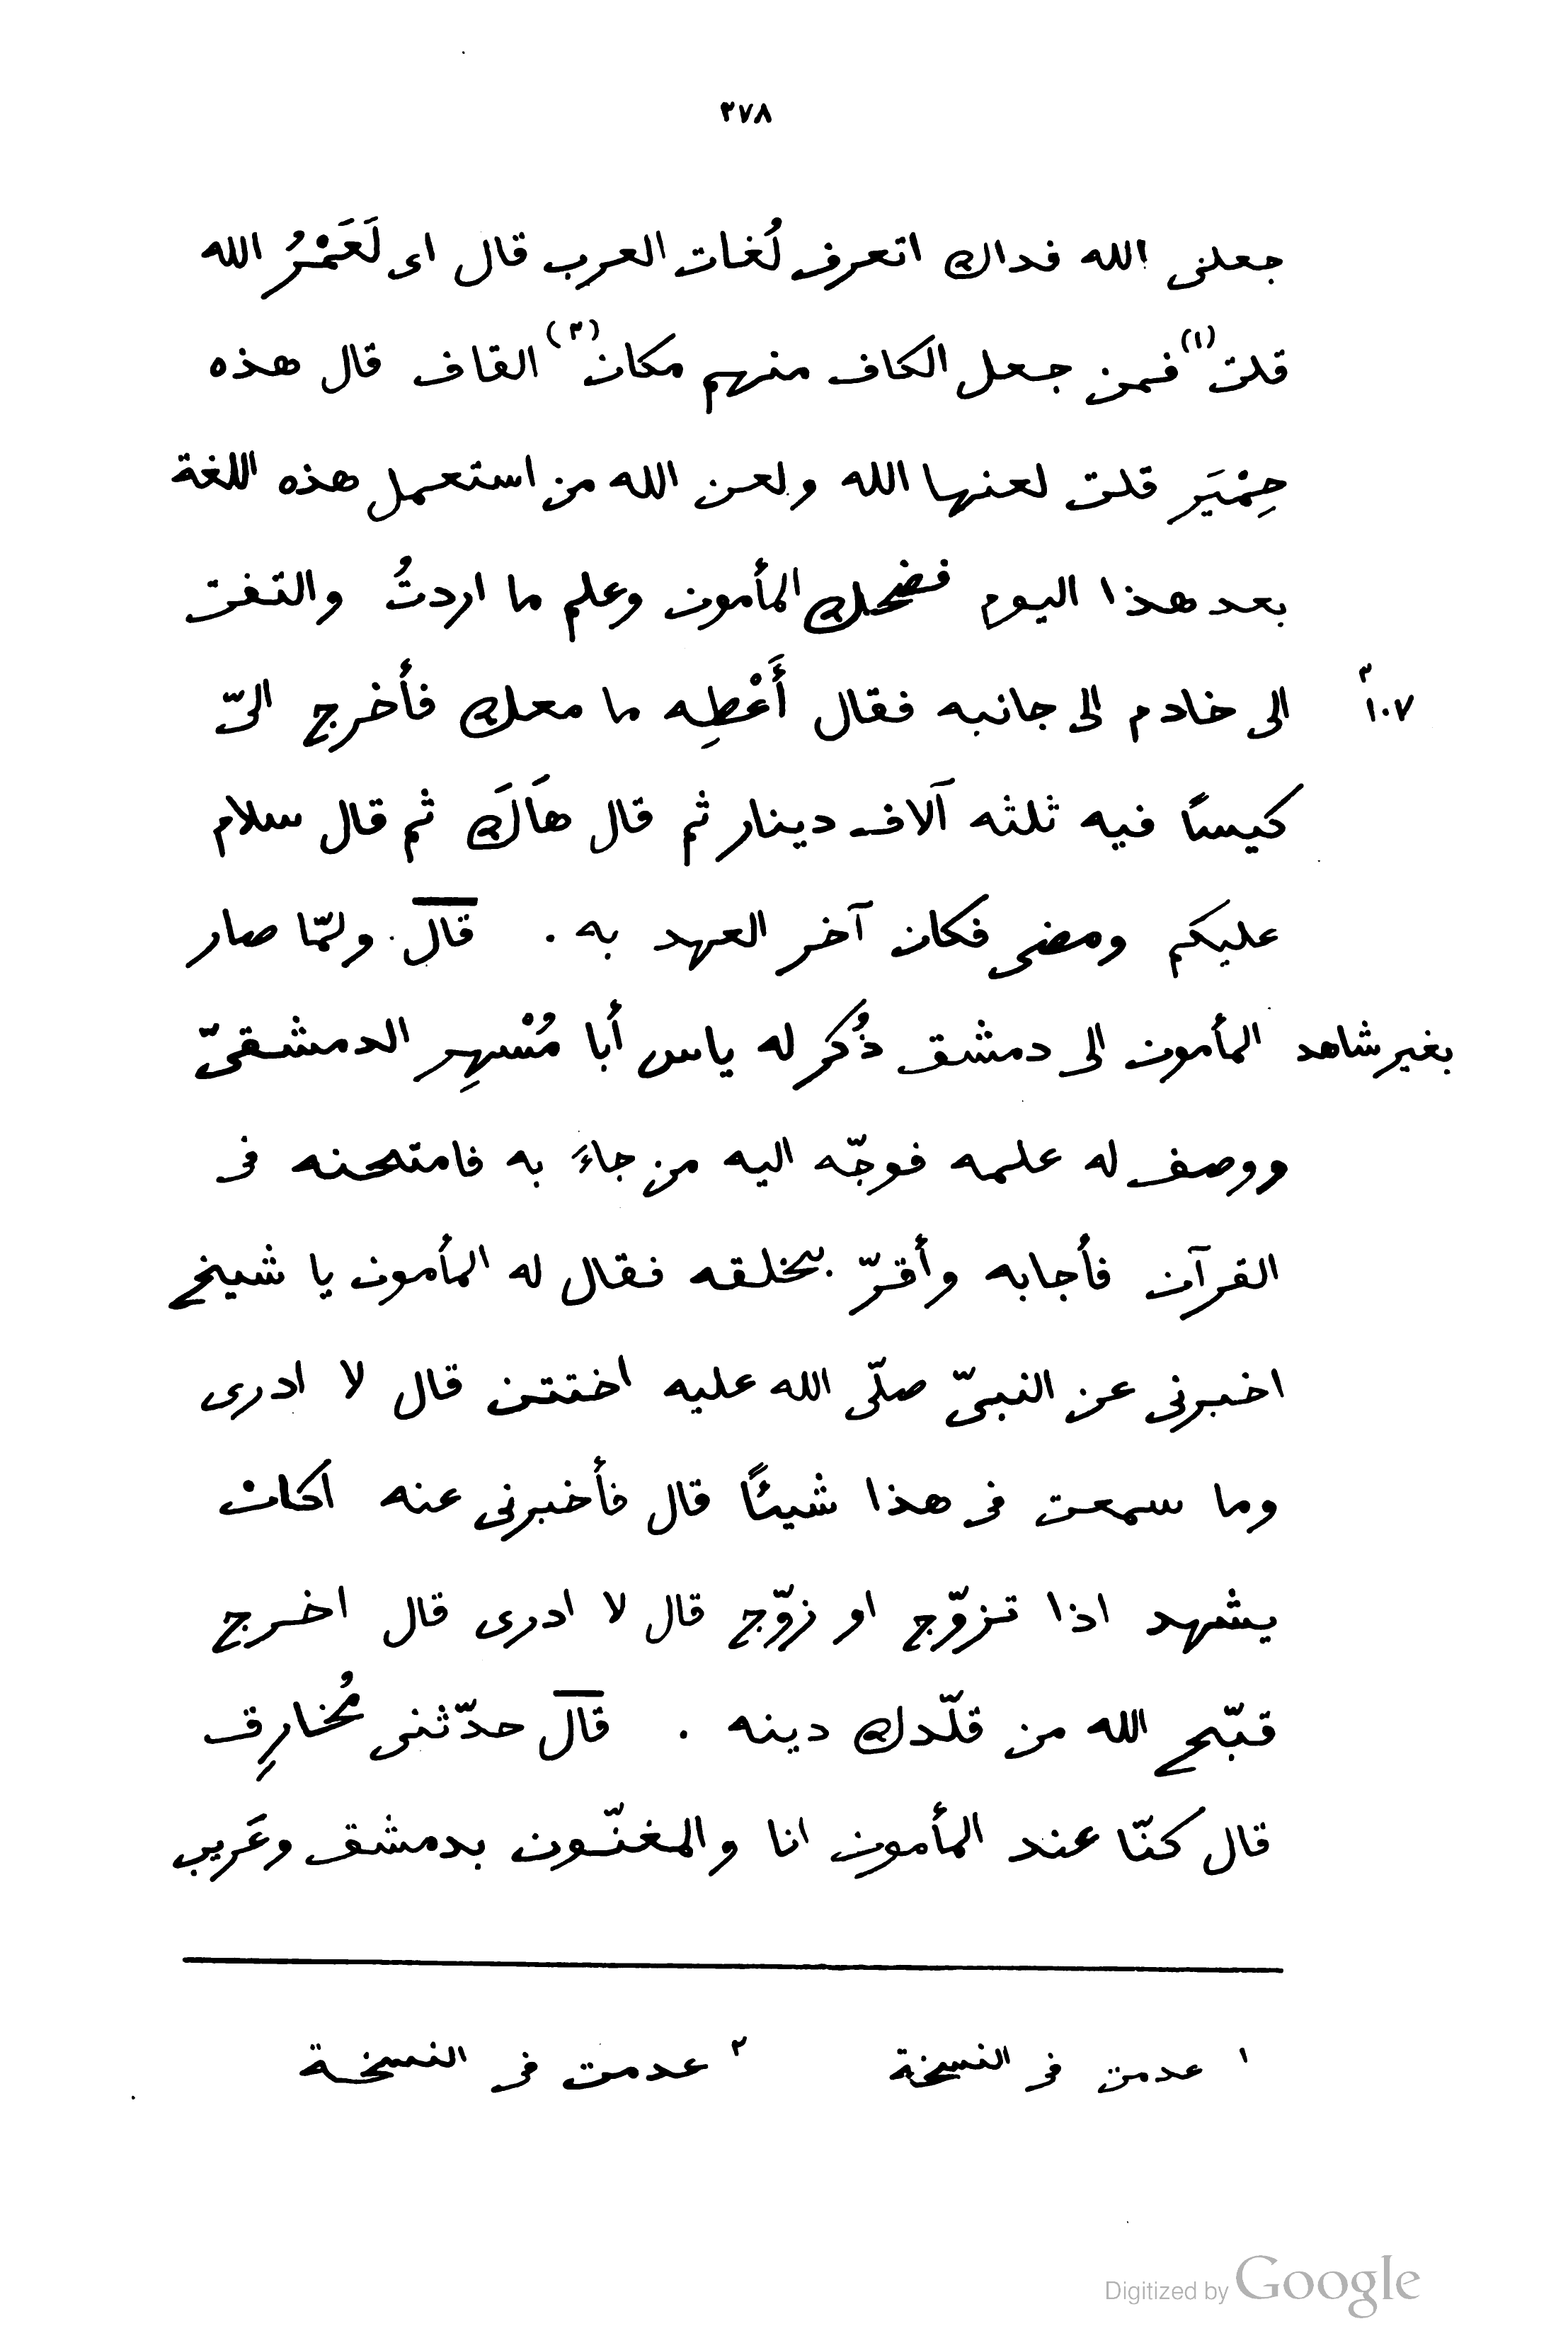 ٢٧٨
جعلنى الله فداك اتعرف لُغات العرب قال اى لَعَمْرُ الله
قلت(١) فمن جعل الكاف منهم مكان(٢) القاف قال هذه
حِمْيَر قلت لعنها الله ولعن الله من استعمل هذه اللغة
بعد هذا اليوم فضحك المأمون وعلم ما اردتُ والتفت
الى خادم الى جانبه فقال أَعْطِه ما معك فأخرج الىّ ١٠٧٢
كيسًا فيه ثلثه آلاف دينار ثم قال هَاكَ ثم قال سلام
عليكم ومضى فكان آخر العهد به . قال ولمّا صار
المأمون الى دمشق ذُكر له ياس أبا مُسْهِر الدمشقىّ بغير شاهد
ووصف له علمه فوجّه اليه من جاءَ به فامتحنه فى
القرآن فأجابه وأقرّ بخلقه فقال له المأمون يا شيخ
اخبرنى عن النبىّ صلّى الله عليه اختتن قال لا ادرى
وما سمعت فى هذا شيئًا قال فأخبرنى عنه اكان
يشهد اذا تزوّج او زوّج قال لا ادرى قال اخرج
قبّح الله من قلّدك دينه . قال حدّثنى مُخارِق
قال كنّا عند المأمون انا والمغنّون بدمشق وعَريب
١ عدمت فى النسخة ٢ عدمت فى النسخة
Digitized by Google